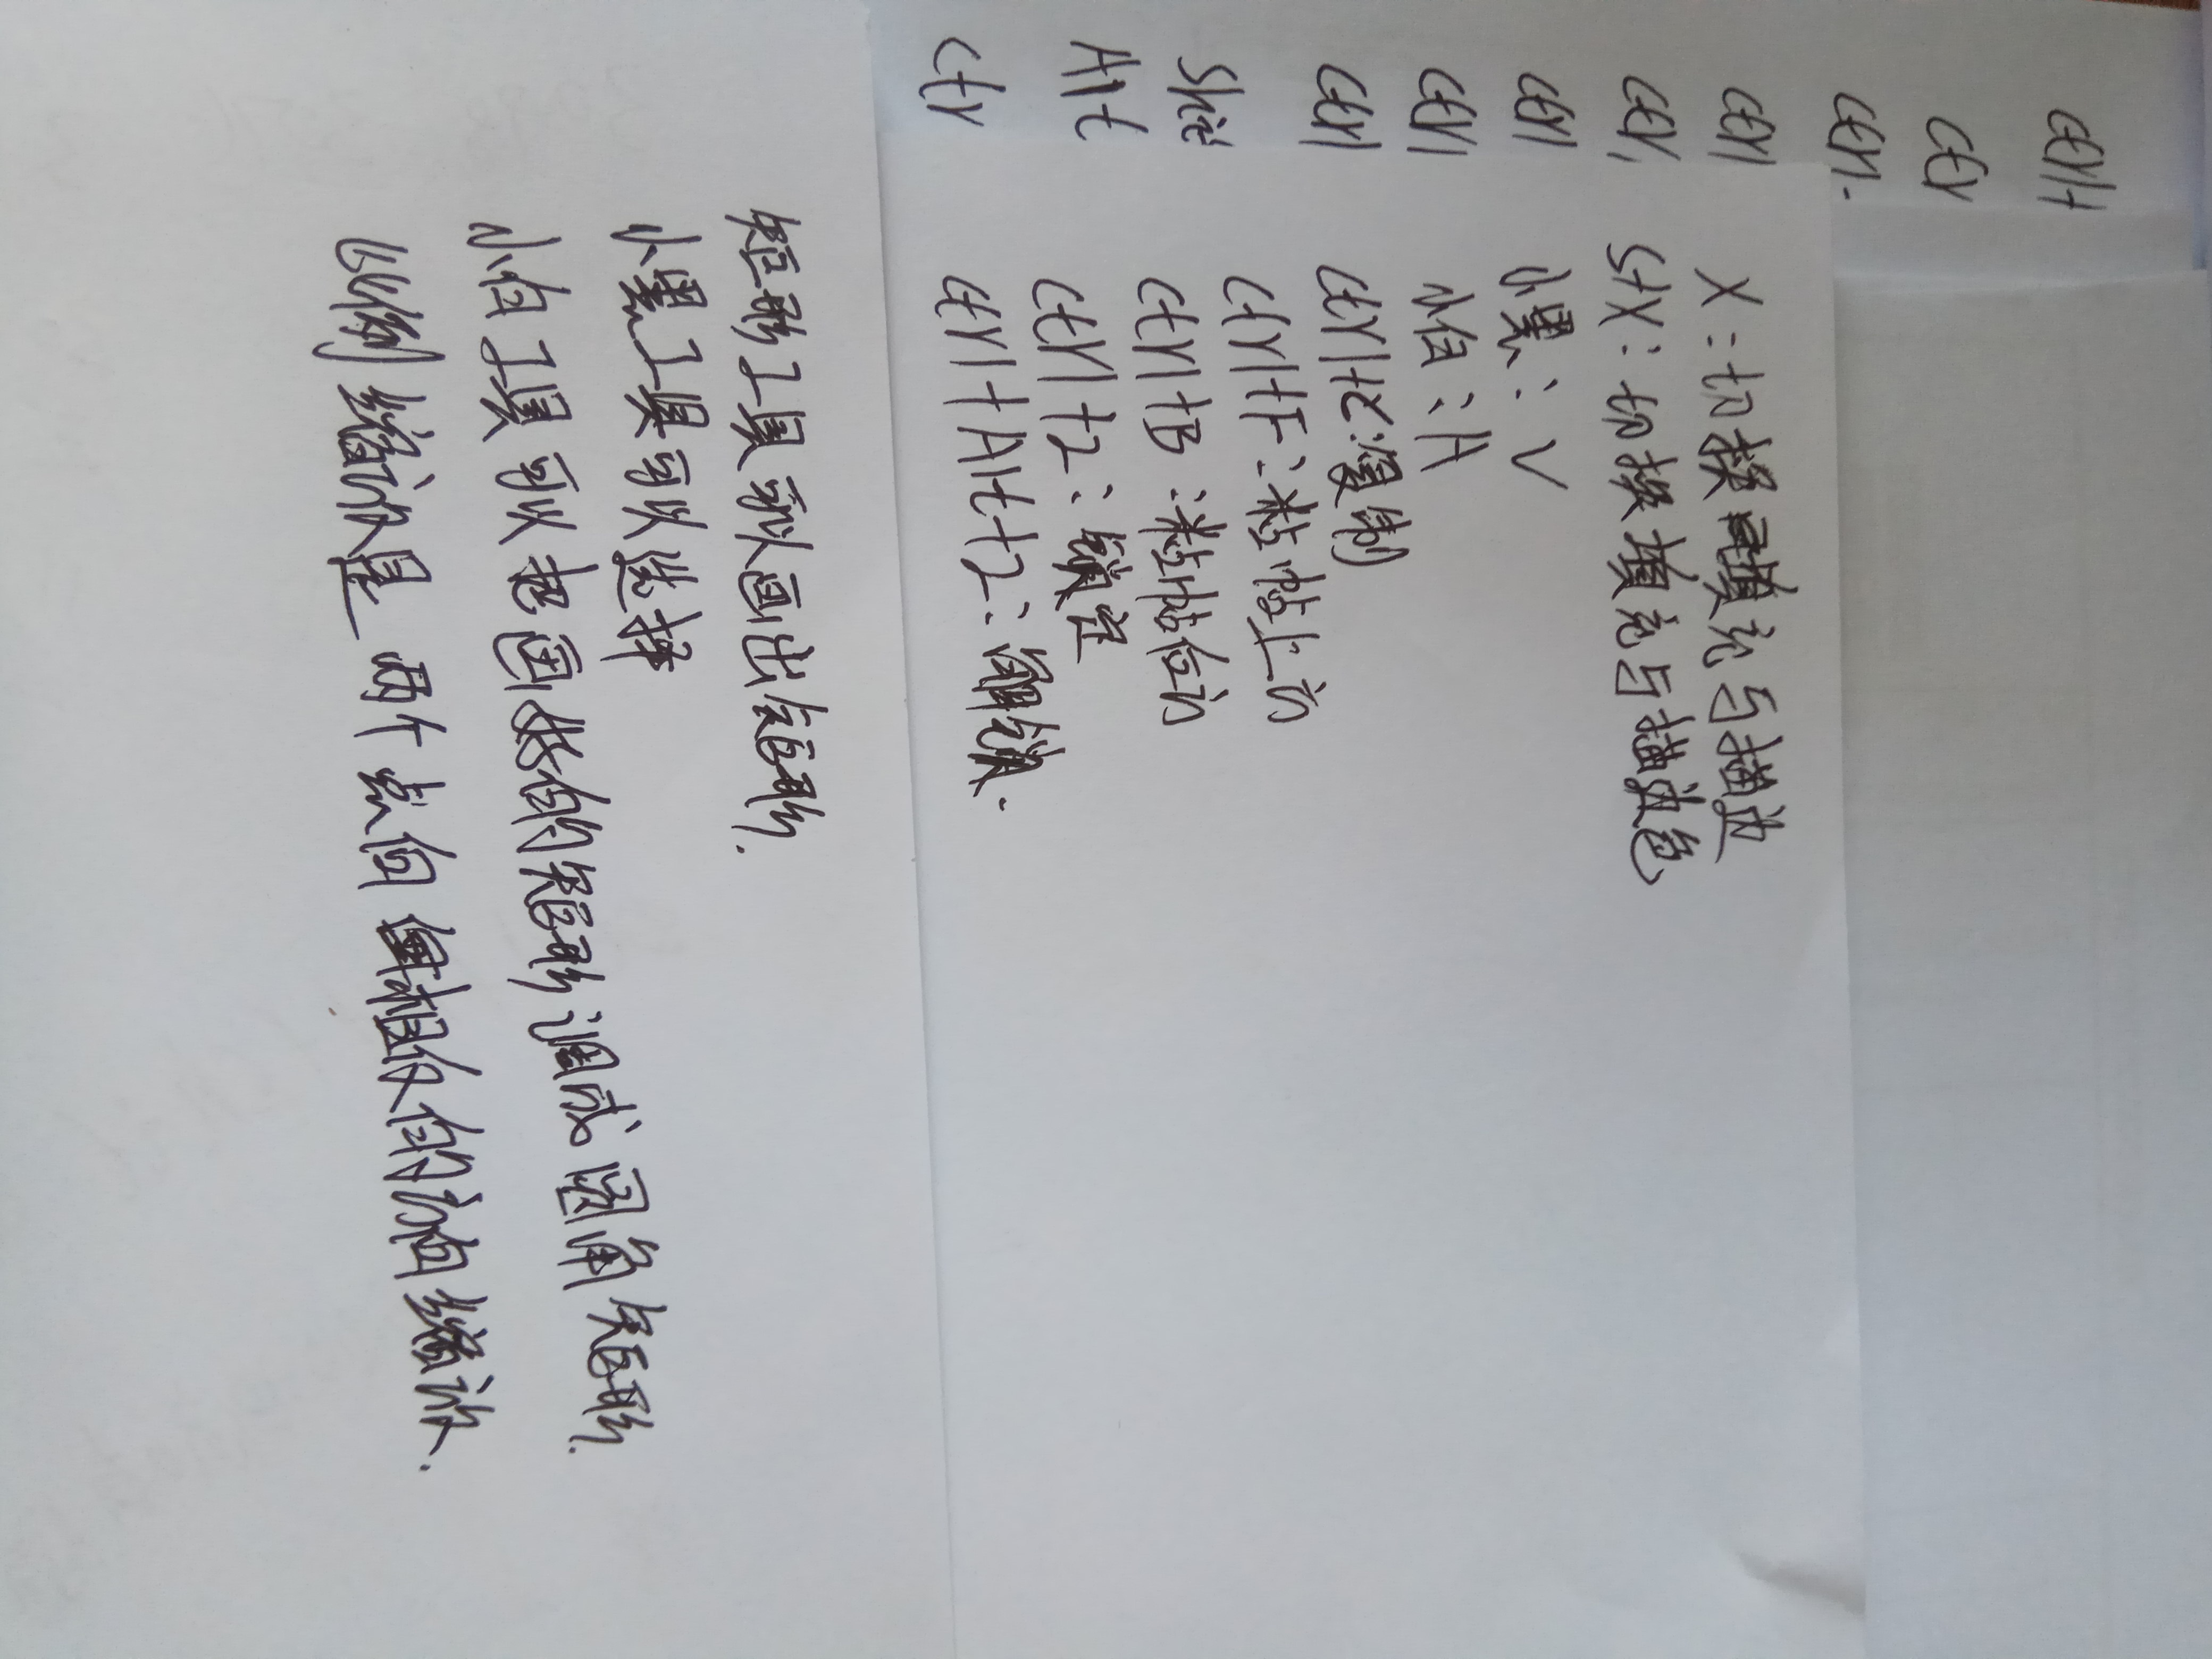 Ctrl+
Ctr
Ctrl
Ctrl
Ctrl
Ctrl
Ctrl
Ctrl
Alt
Ctr
X：切换填充与描边
S+X：切换填充与描边色
小黑：V
小白：A
Ctrl+C：复制
Ctrl+F：粘帖上方
Ctrl+B：粘帖后方
Ctrl+2：锁定
Ctrl+Alt+2：解锁.
矩形工具可以画出矩形.
小黑工具可以选择
小白工具可以把画好的矩形调成圆角矩形.
比例缩放是两个点向相反的方向缩放.